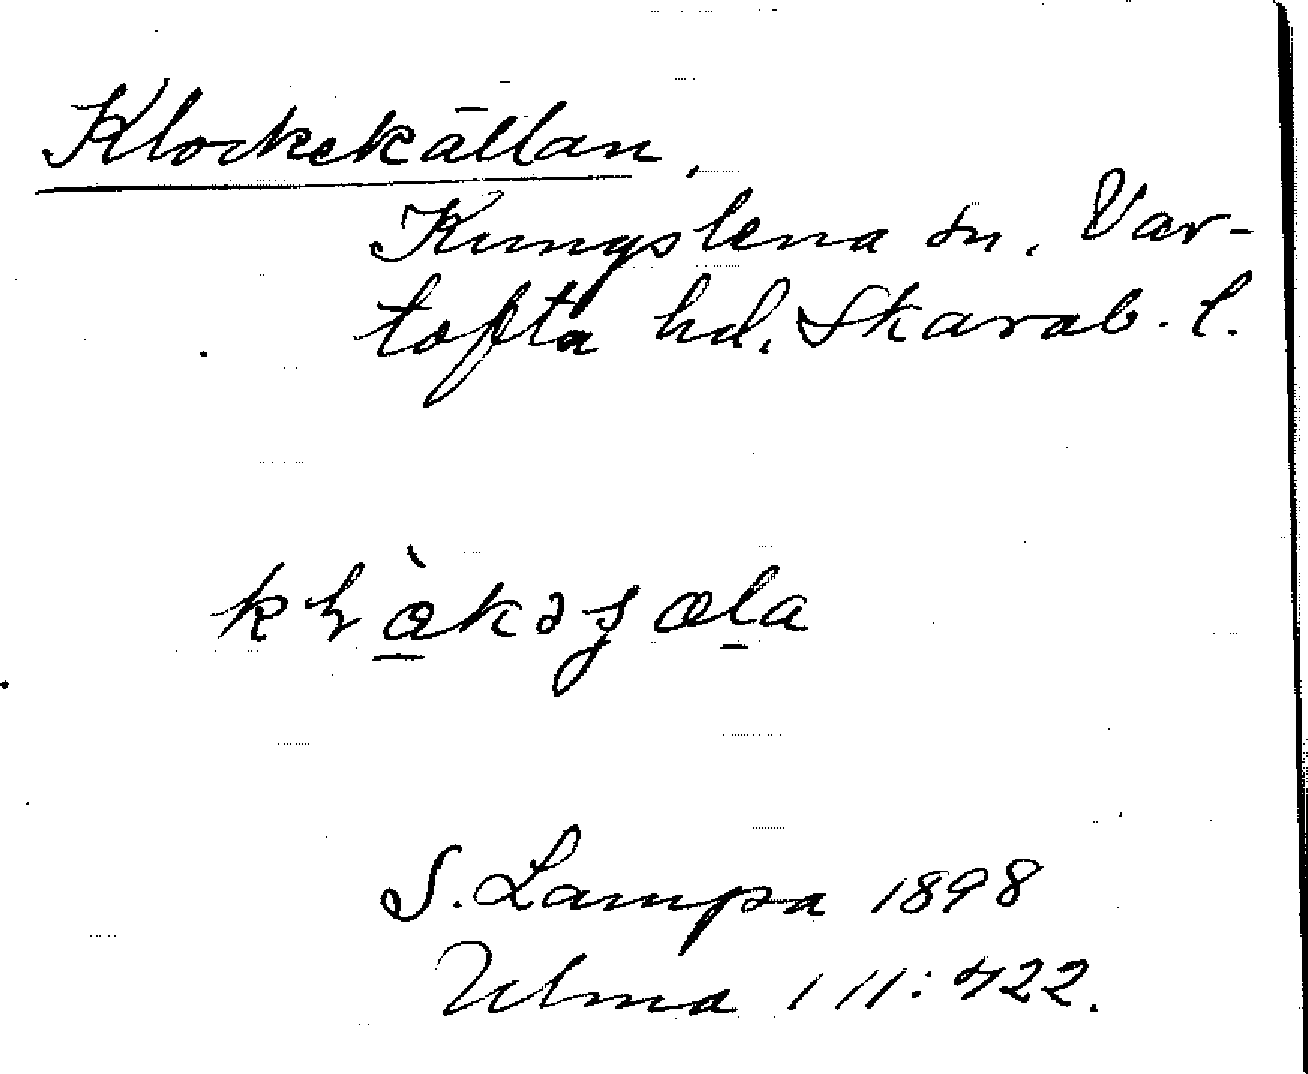 Klockekällan.
Kungslena sn. Var-
tofta hd. Skarab. l.
S. Lampa 1898
Ulma 111:422.